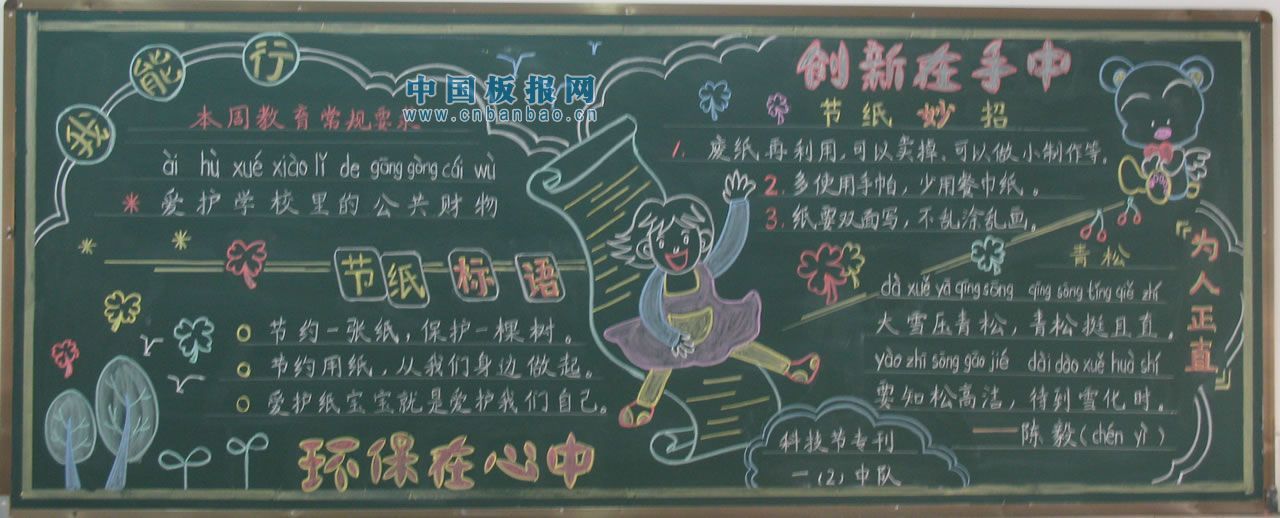 我能行
中国板报网
www.cnbanbao.cn
本周教育常规要求
ài hù xué xiào lǐ de gōng gòng cái wù
* 爱护学校里的公共财物
节纸标语
节约一张纸，保护一棵树。
节约用纸，从我们身边做起。
爱护纸宝宝就是爱护我们自己。
环保在心中
创新在手中
节纸妙招
1. 废纸再利用，可以卖掉、可以做小制作等。
2. 多使用手帕，少用餐巾纸。
3. 纸要双面写，不乱涂乱画。
青松
dà xuě yā qīng sōng qīng sōng tǐng qiě zhí
大雪压青松，青松挺且直。
yào zhī sōng gāo jié dài dào xuě huà shí
要知松高洁，待到雪化时。
——陈毅(chén yì)
『为人正直』
科技节专刊
一(2)中队